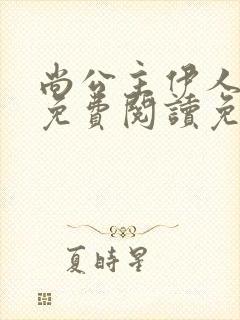 尚公主伊人
免費閱讀免
夏時星